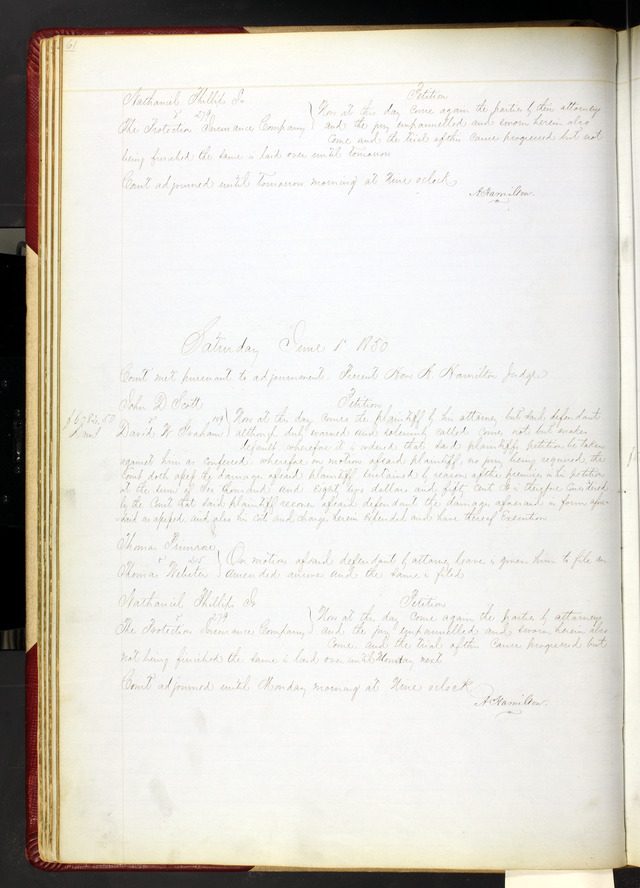 61
Nathaniel Phillips Jr Petition
vs 279 Now at this day come again the parties by their attorneys
The Protection Insurance Company and the jury empannelled and sworn herein also
Come and the trial of this Cause progressed but not
being finished the same is laid over until tomorrow
Court adjourned until tomorrow morning at Nine oclock
A Hamilton
Saturday June 1st 1850
Court met pursuant to adjournment. Present Hon A. Hamilton Judge
John D Scott Petition
vs Now at this day comes the plaintiff by his attorney but said defendant
David W Graham although duly warned and solemnly called come not but makes
default wherefore it is ordered that said plaintiffs petition be taken
against him as confessed. wherefore on motion of said plaintiff no jury being required the
Court doth assess the damage of said plaintiff sustained by reason of the premises in his petition
at the sum of Six thousand and Eighty two dollars and fifty cents It is therefore Considered
by the Court that said plaintiff recover of said defendant the damage aforesaid in form afore
said assessed and also his costs and charges herein Expended and have thereof Execution
Thomas Primrose
vs On motion of said defendant by attorney leave is given him to file an
Thomas Webster amended answer and the same is filed
Nathaniel Phillips Jr Petition
vs 279 Now at this day come again the parties by attorneys
The Protection Insurance Company and the jury empannelled and sworn herein also
Come and the trial of this Cause progressed but
not being finished the same is laid over until Monday next
Court adjourned until Monday morning at Nine oclock
A Hamilton